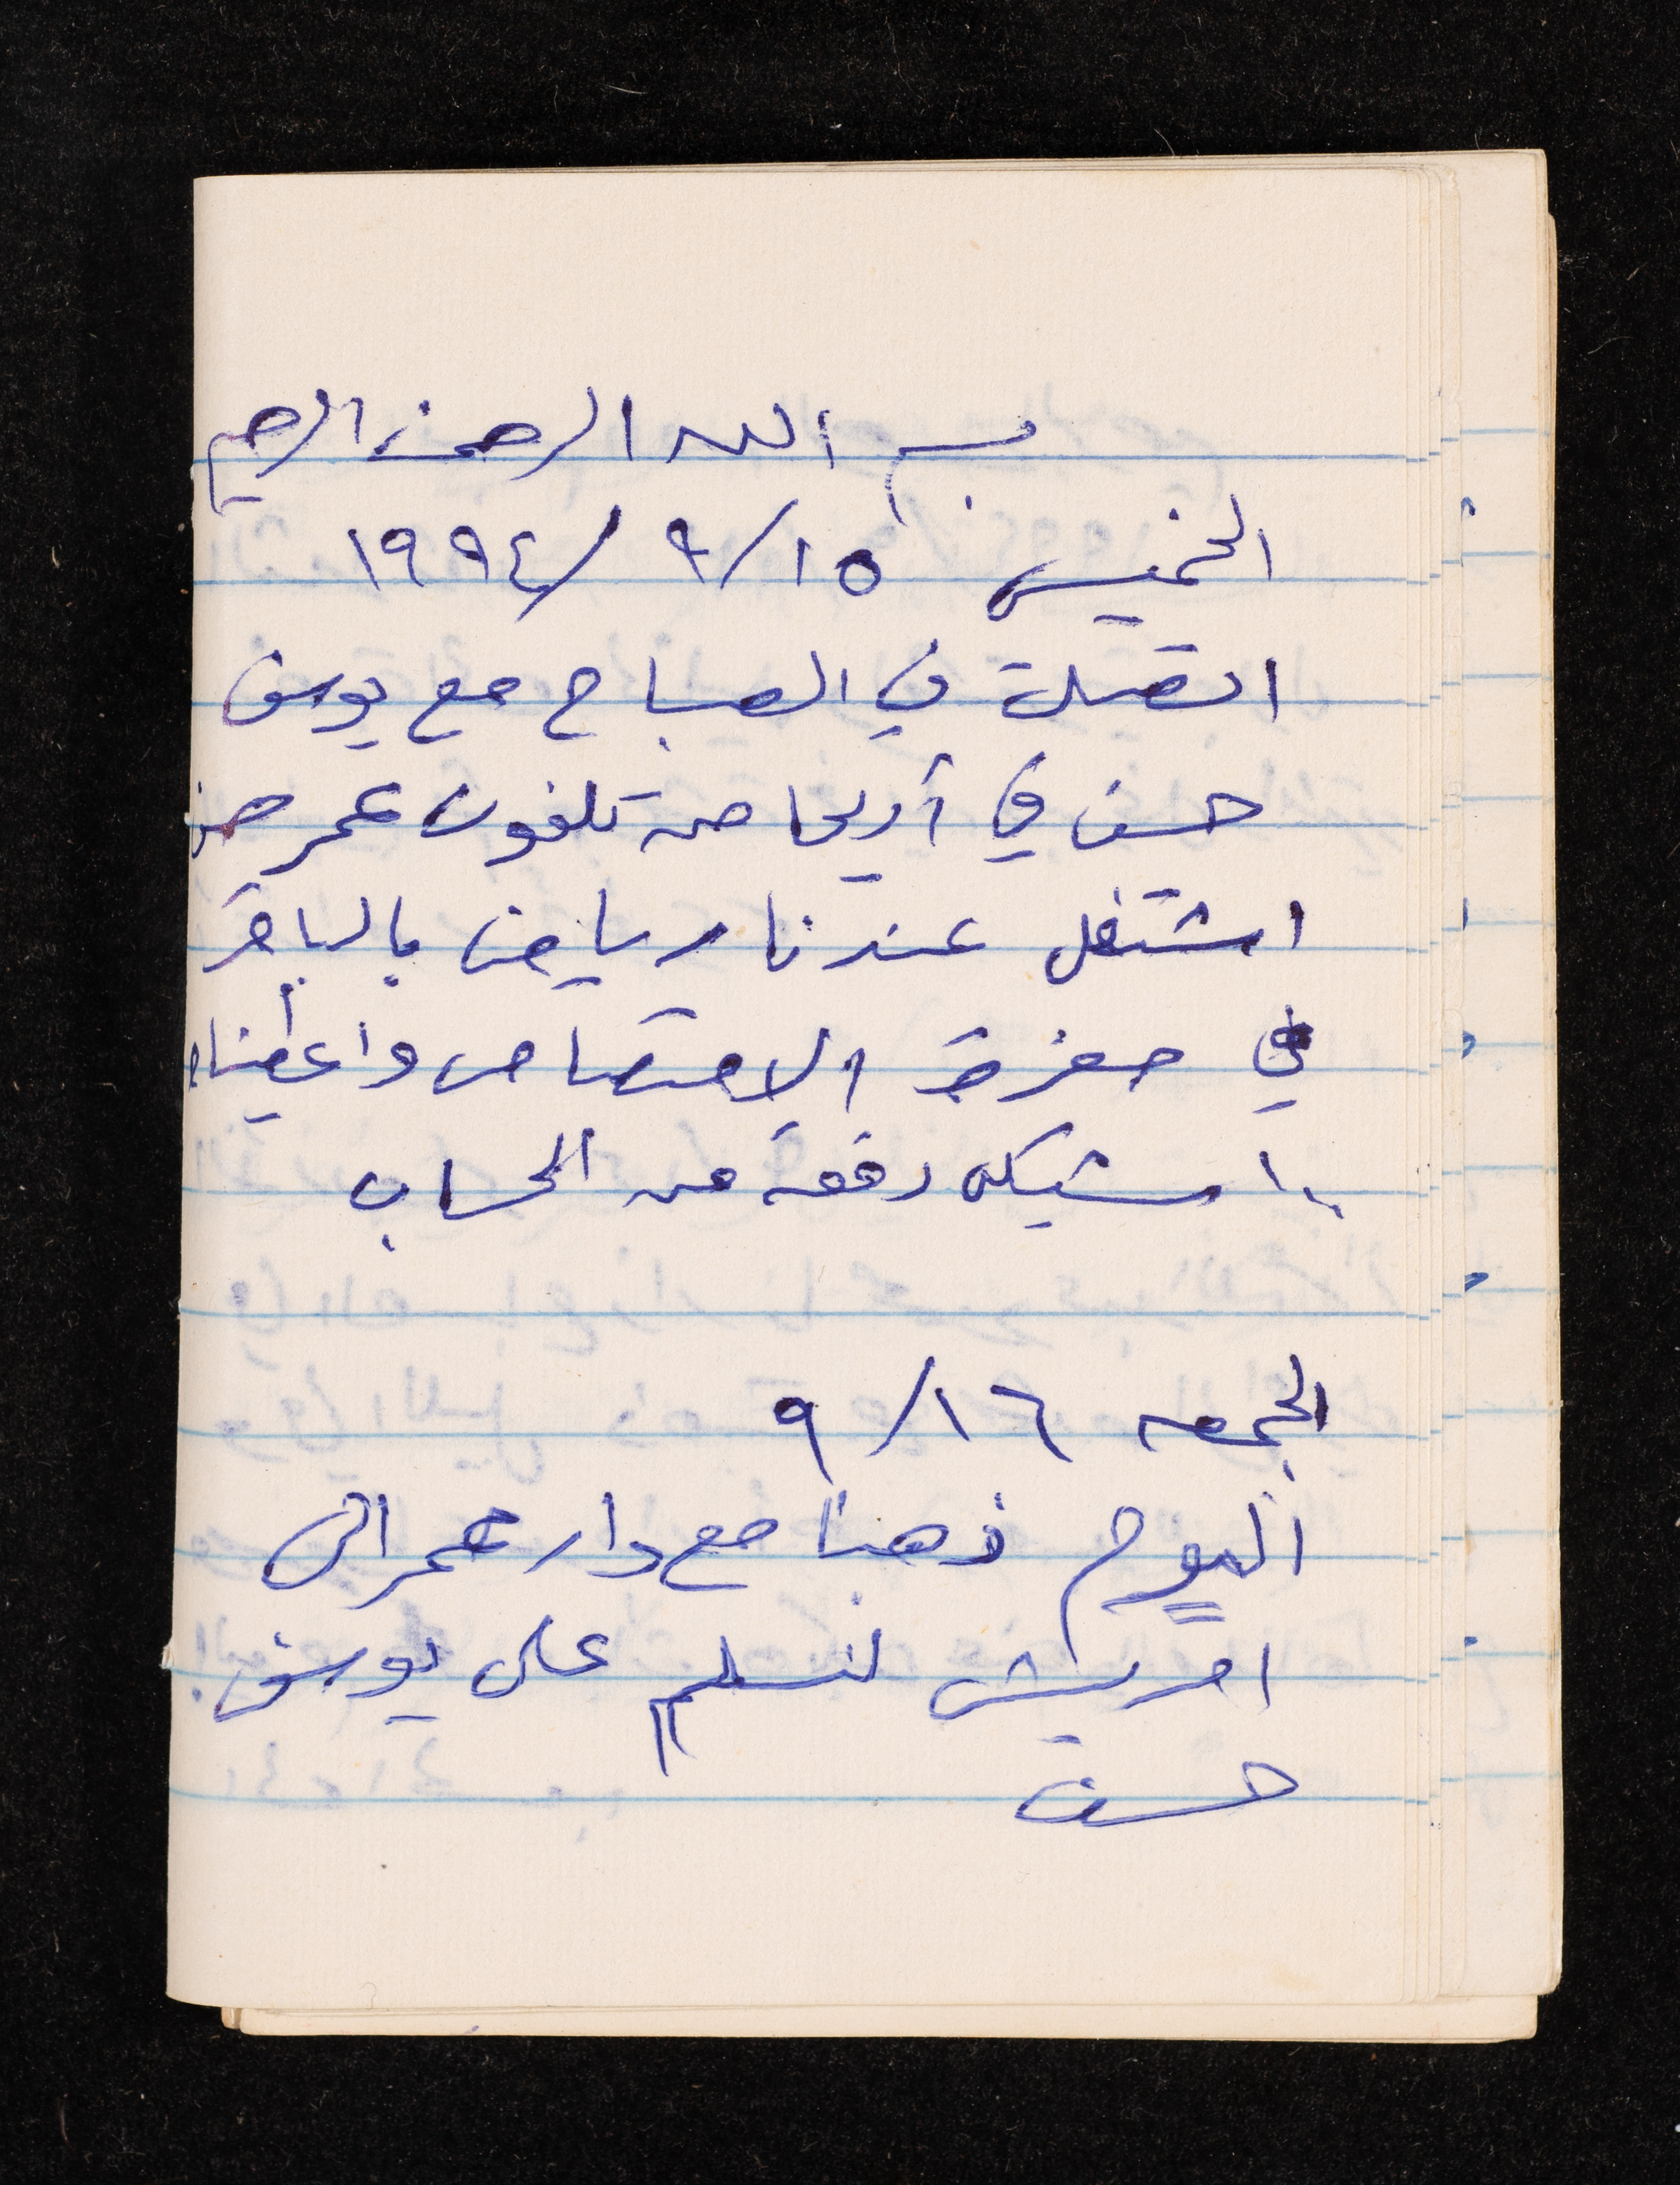 بسم الله الرحمن الرحيم
الخميس ١٥/ ٩/ ١٩٩٤
اتصلت في الصباح مع يوسف
حسن في أريحا من تلفون عمر حسن
اشتغل عندنا رياض بالباقر
في حفرة الامتصاص واعطيناه
١٠٠ شيكل دفعة من الحساب
الجمعه ١٦/ ٩
اليوم ذهبنا مع دار عمر الى
امريش لنسلم على يوسف
حسن